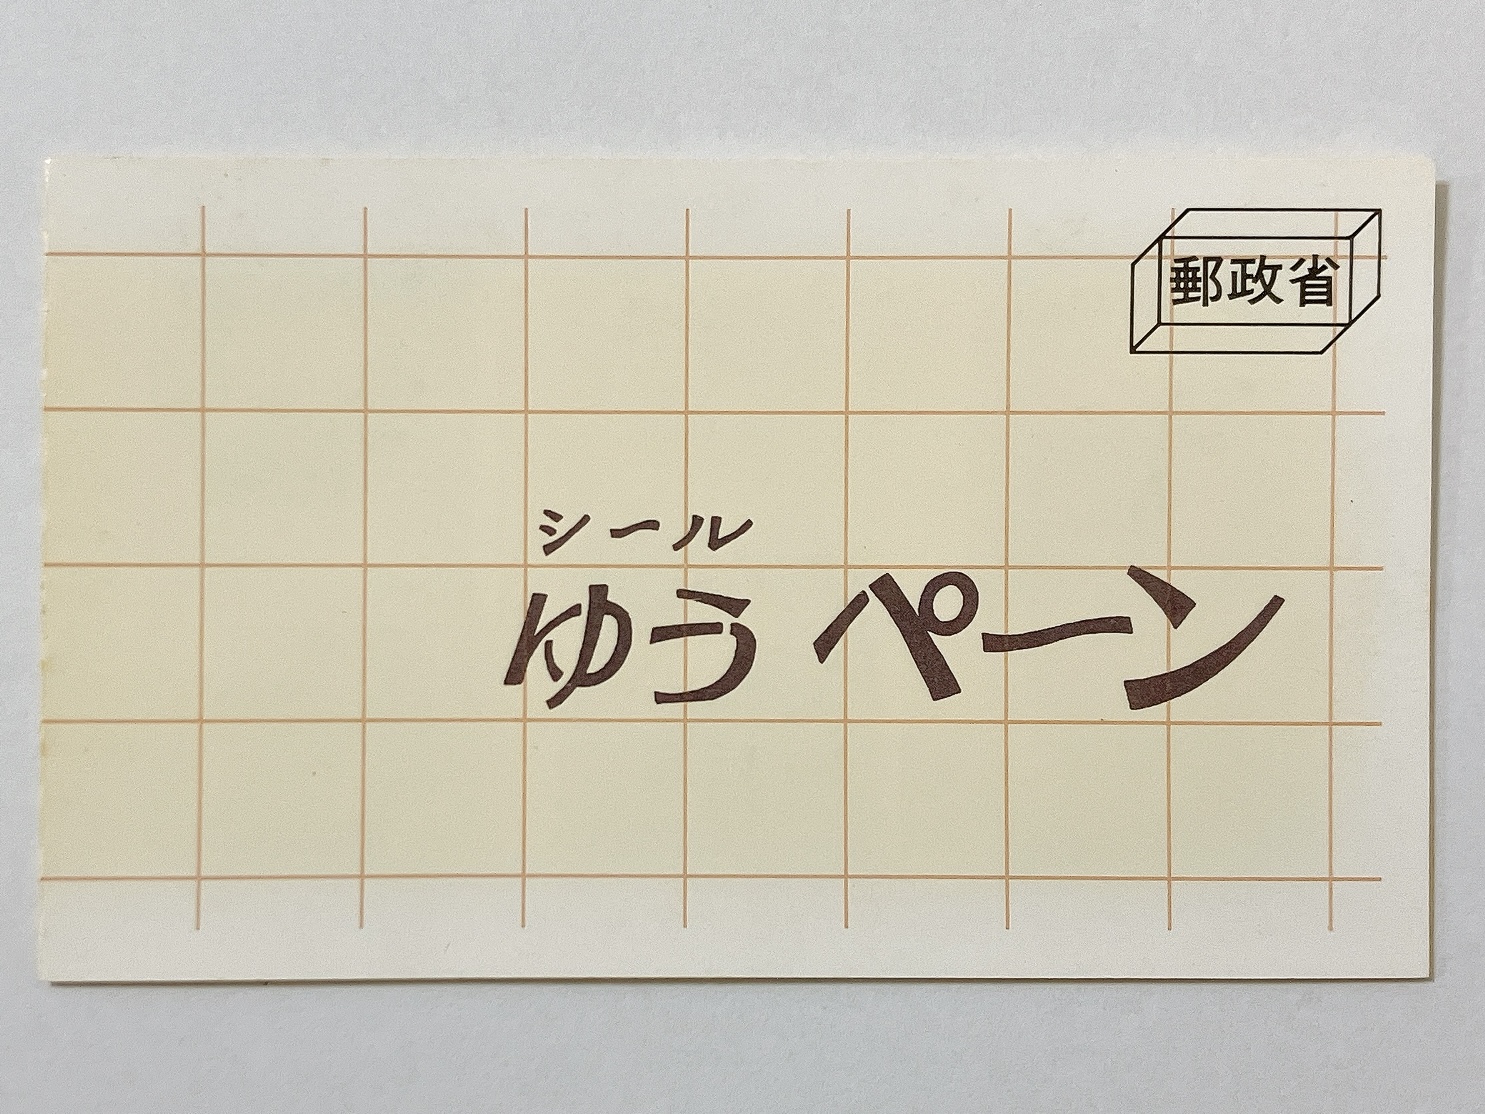 郵政省
シール
ゆうペーン